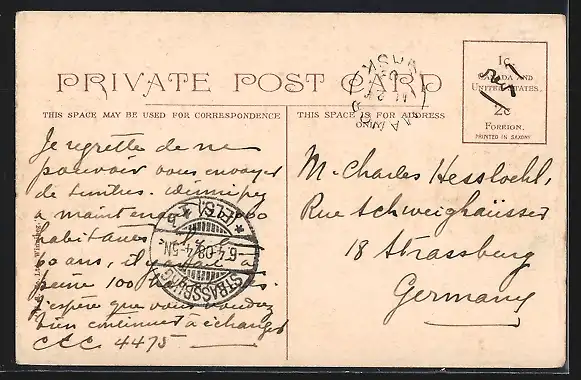 PRIVATE POST CARD
THIS SPACE MAY BE USED FOR CORRESPONDENCE
THIS SPACE IS FOR ADDRESS ONLY
1c
CANADA AND
UNITED STATES.
2c
FOREIGN.
PRINTED IN SAXONY
Je regrette de ne
pouvoir vous envoyer
de timbres. Winnipeg
a maintenant
habitants
60 ans, il y a
peine 100
J'espère que vous voudrez
bien continuer à échanger
C.C.C. 4475
STRASSBURG
(ELS.)
6.4.08.4-5N
M. Charles Hessloehl,
Rue Schweighäusser
18 Strassburg
Germany